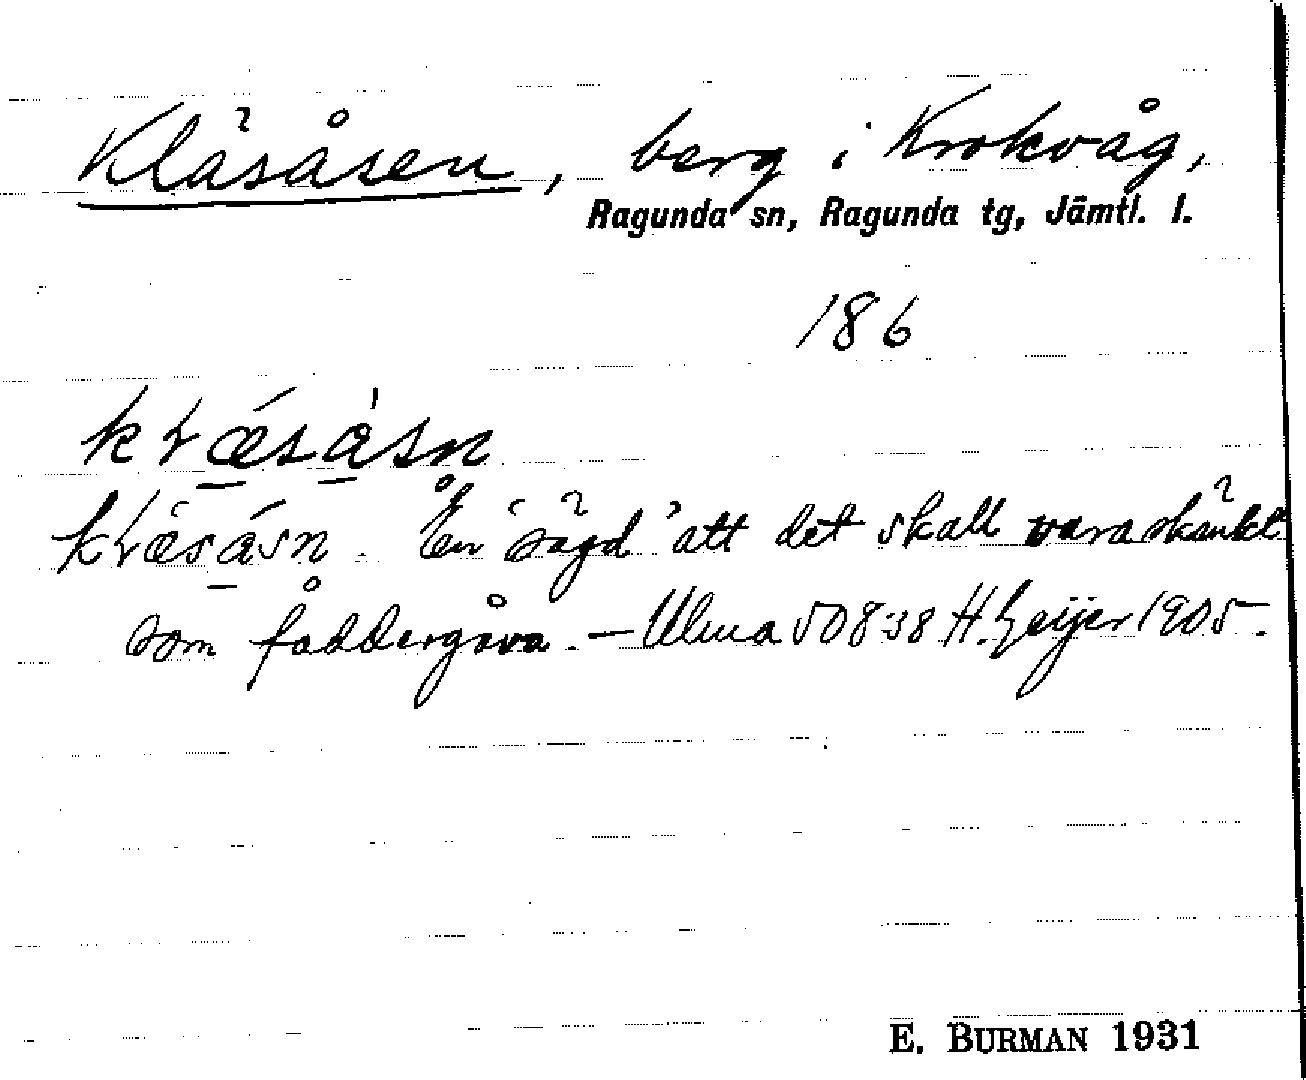 Kläsåsen, berg i Krokvåg,
Ragunda sn, Ragunda tg, Jämtl. l.
186
kłǽsåsn
kłæsåsn. En 'sägd' att det skall vara skänkt
som faddergåva. — Ulma 50838 H. Geijer 1905.
E. BURMAN 1931